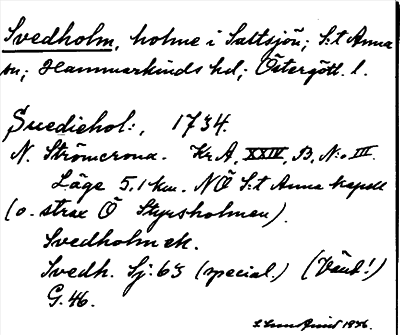 Svedholm, holme i Saltsjön; S:t Anna
sn; Hammarkinds hd; Östergötl. l.
Suediehol:, 1734.
N. Strömcrona. Kr A, XXIV, B, N:o III.
Läge 5,1 km. NÖ S:t Anna kapell
(o. strax Ö Styrsholmen).
Svedholm ek.
Svedh. Sj: 63 (special.) (Vänd!)
G. 46.
1936.